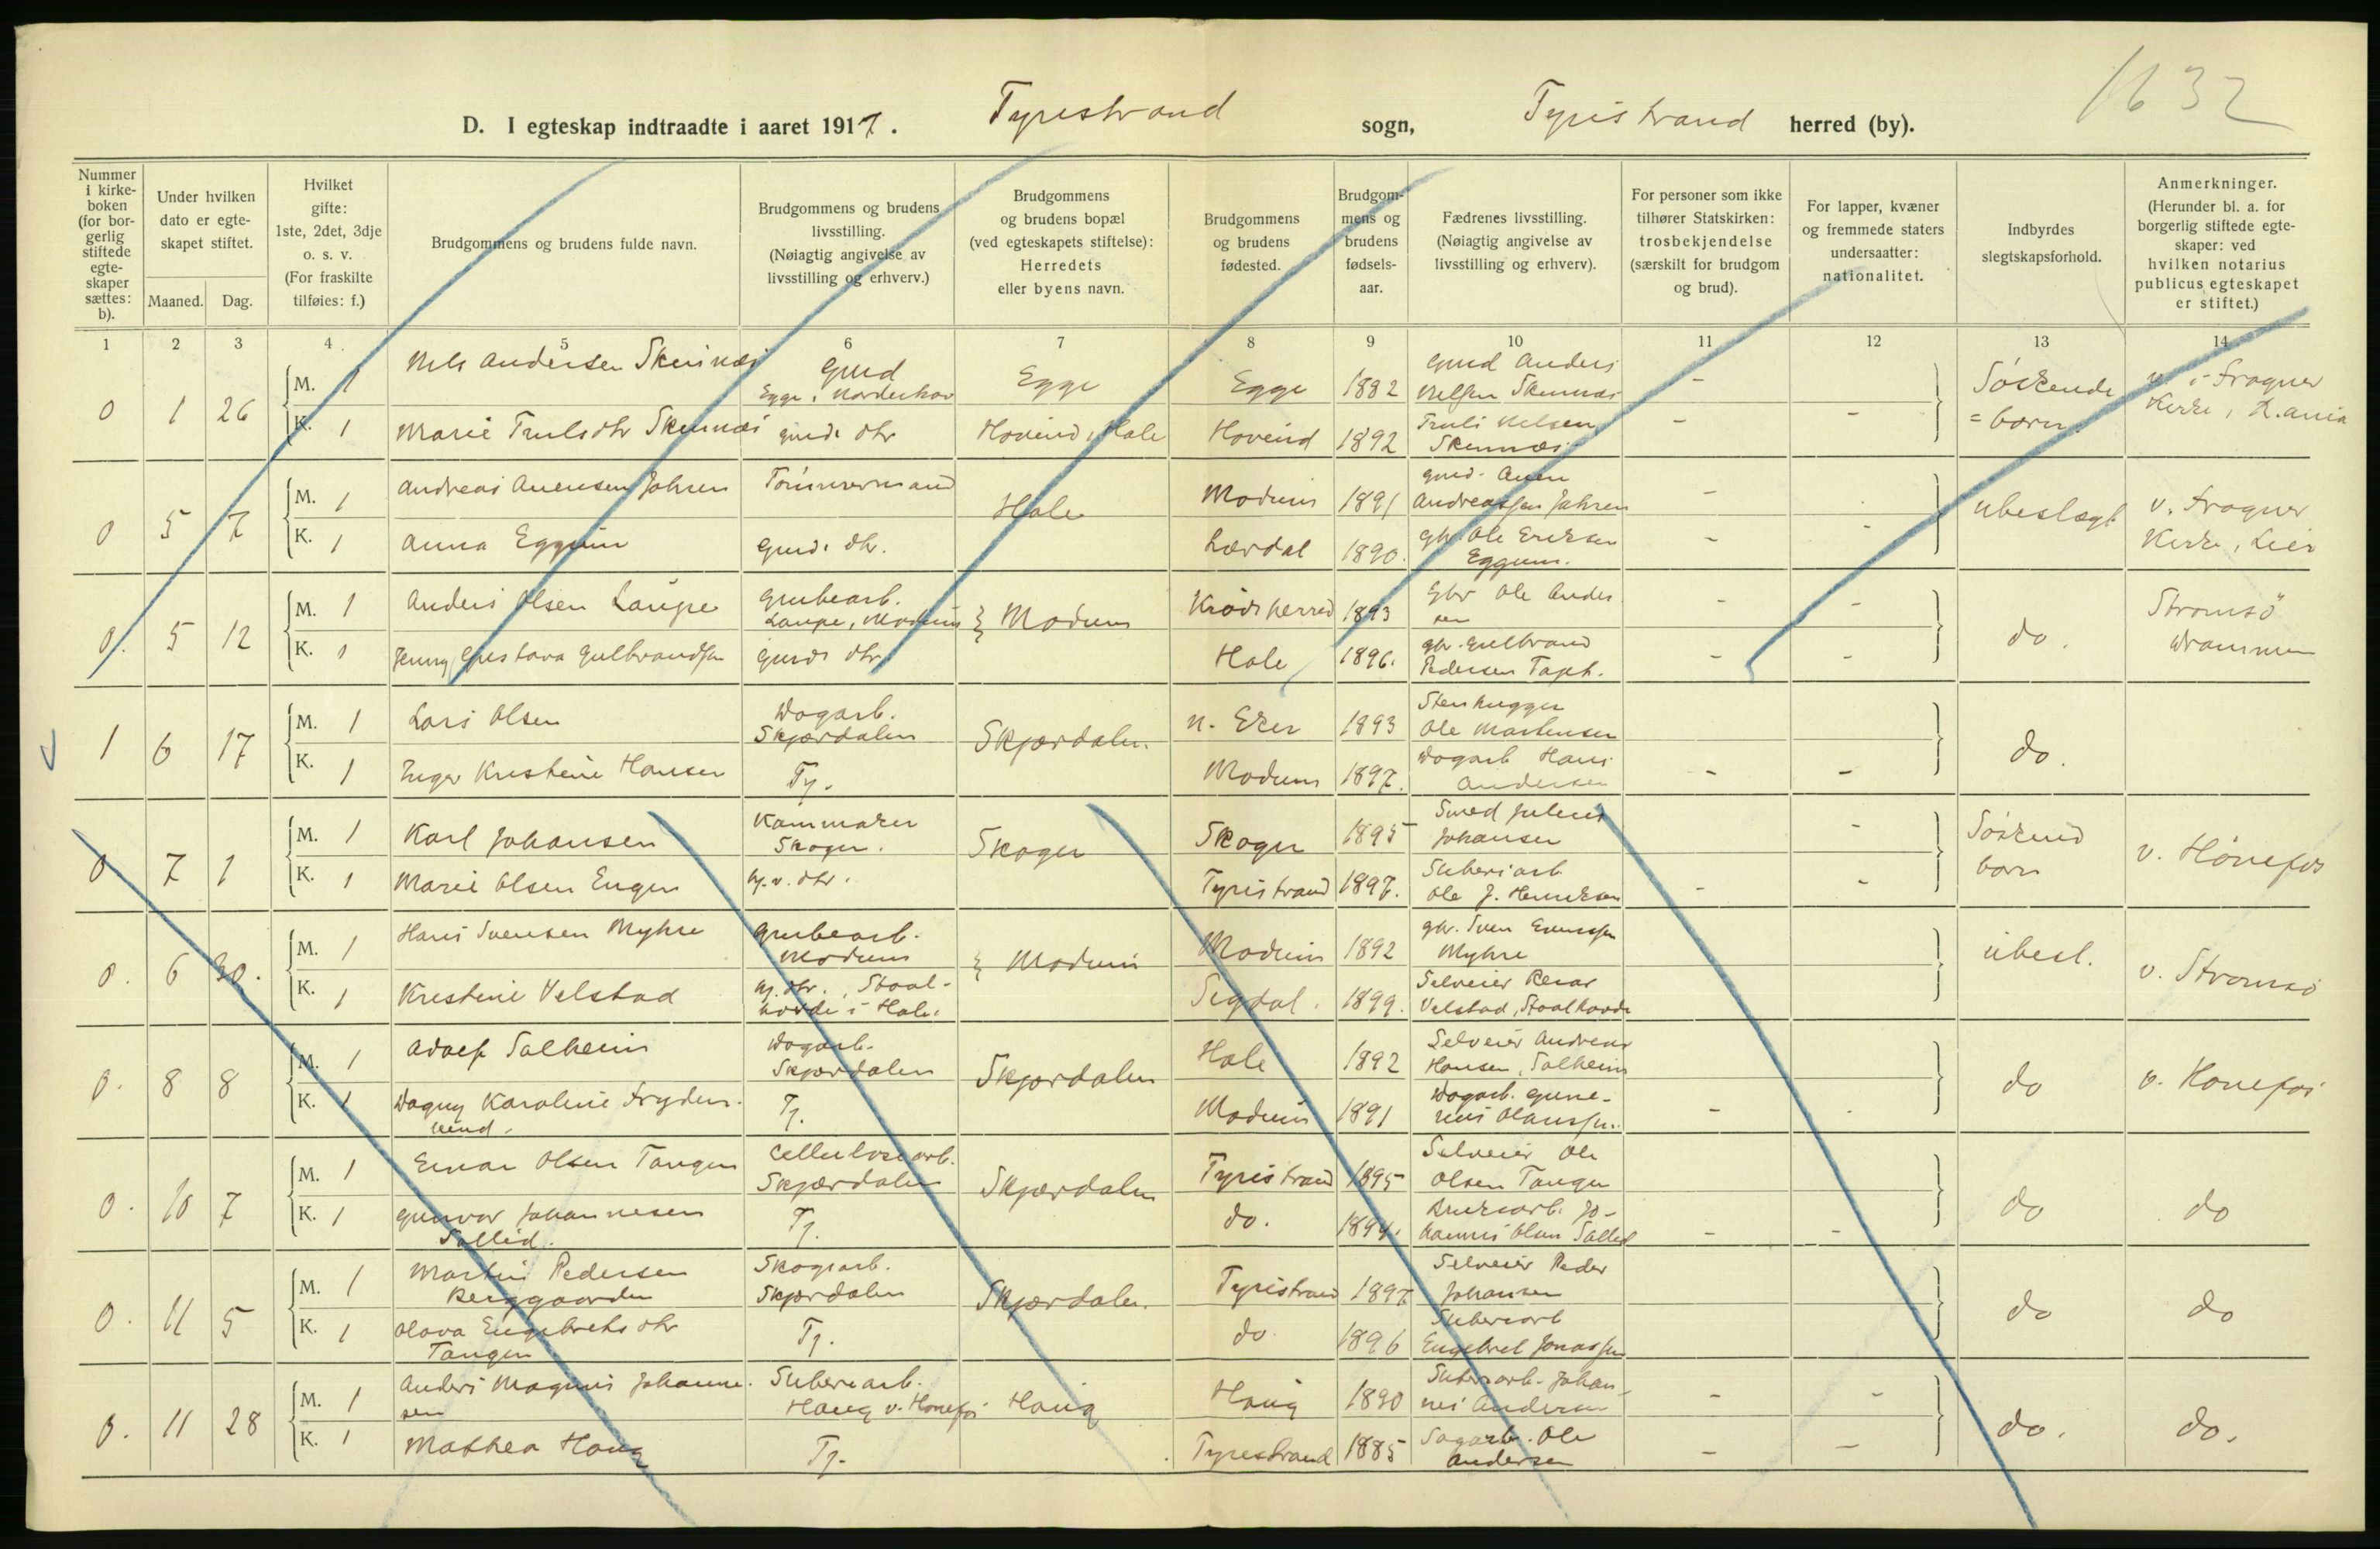 1632
D. I egteskap indtraadte i aaret 1917. Tyristrand sogn, Tyristrand herred (by).
Nummer i kirke-boken (for bor-gerlig stiftede egte-skaper sættes: b).
Under hvilken dato er egte-skapet stiftet.
Maaned. Dag.
Hvilket gifte: 1ste, 2det, 3dje o. s. v. (For fraskilte tilføies: f.)
Brudgommens og brudens fulde navn.
Brudgommens og brudens livsstilling. (Nøiagtig angivelse av livsstilling og erhverv.)
Brudgommens og brudens bopæl (ved egteskapets stiftelse): Herredets eller byens navn.
Brudgommens og brudens fødested.
Brudgom-mens og brudens fødsels-aar.
Fædrenes livsstilling. (Nøiagtig angivelse av livsstilling og erhverv).
For personer som ikke tilhører Statskirken: trosbekjendelse (særskilt for brudgom og brud).
For lapper, kvæner og fremmede staters undersaatter: nationalitet.
Indbyrdes slegtskapsforhold.
Anmerkninger. (Herunder bl. a. for borgerlig stiftede egte-skaper: ved hvilken notarius publicus egteskapet er stiftet.)
1 2 3 4 5 6 7 8 9 10 11 12 13 14
0 1 26
M. 1 Nils Andersen Skinnæs Gmd Egge, Norderhov Egge Egge 1882 Gmd Anders Nelsen - Søskende = born v. i Frogner Kirke,
K. 1 Marie Trulsdtr gmds dtr Hovind, Hole Hovind 1892 Truls Nelsen - -
0 5 7
M. 1 Andreas Auensen Jahren Tømmermand Hole Modum 1891 gmd. Auen Andreassen Jahren - ubeslægt v. Frogner Kirke, Lier
K. 1 Anna Eggum Gmds dtr. Lærdal 1890. gbr. Ole Eriksen Eggum. - -
0. 5 12
M. 1 Anders Olsen Laupe Grubearb. Laupe, Modum } Modum Krødsherred 1893 Gbr Ole Andersen - - do. Strømsø Drammen
K. 1 Jenny Gustava Gulbrandsen Gmds dtr Hole 1896. gbr. Gulbrand Pedersen - -
1 6 17
M. 1 Lars Olsen Dagarb. Skjærdalen Skjærdalen. N. Eker 1893 Stenhugger Ole Martinsen do.
K. 1 Inger Kristine Hansen Tj. Modum 1897. Dagarb Hans Andersen - -
0 7 1
M. 1 Karl Johansen Skoger. Skoger Skoger 1895 Smed Julius Johansen - Søskend born v. Hønefos
K. 1 Marie Olsen Engen hj. v. dtr. Tyristrand 1897. Sliberiarb Ole J. Henriksen - -
0. 6 30.
M. 1 Hans Svensen Myhre Grubearb. Modum } Modum Modum 1892 gbr. Sven Myhre ubesl. v. Strømsø
K. 1 Kristine Velstad hj. dtr., i Hole. Sigdal. 1899. Selveier Velstad,
0. 8 8
M. 1 Adolf Solheim Dagarb. Skjærdalen Skjærdalen Hole 1892 Selveier Andreas Hansen, Solheim do v. Hønefos
K. 1 Dagny Karoline Frydenlund. Tj. Modum 1891 Dagarb. - .
0. 10 7
M. 1 Einar Olsen Tangen Cellulosearb. Skjærdalen Skjærdalen Tyristrand 1895 Selveier Ole Olsen Tangen do do
K. 1 Gunvor Johannesen Tj. do. 1894. Bruksarb. Johannes Olsen - -
0. 11 5
M. 1 Martin Pedersen Berggaarden Skogsarb. Skjærdalen Skjærdalen. Tyristrand 1897 Selveier Peder Johansen do do
K. 1 Olava Engebrets dtr Tangen Tj. do. 1896 Sliberiarb Engebret Jonassen
0. 11 28
M. 1 Anders Magnus Johannesen Sliberiarb. Haug v. Hønefos Haug Haug 1890 Sliberiarb. Johannes Andersen - - do. do.
K. 1 Mathea Haug Tj. Tyristrand 1885 Sagarb. Ole Andersen - -